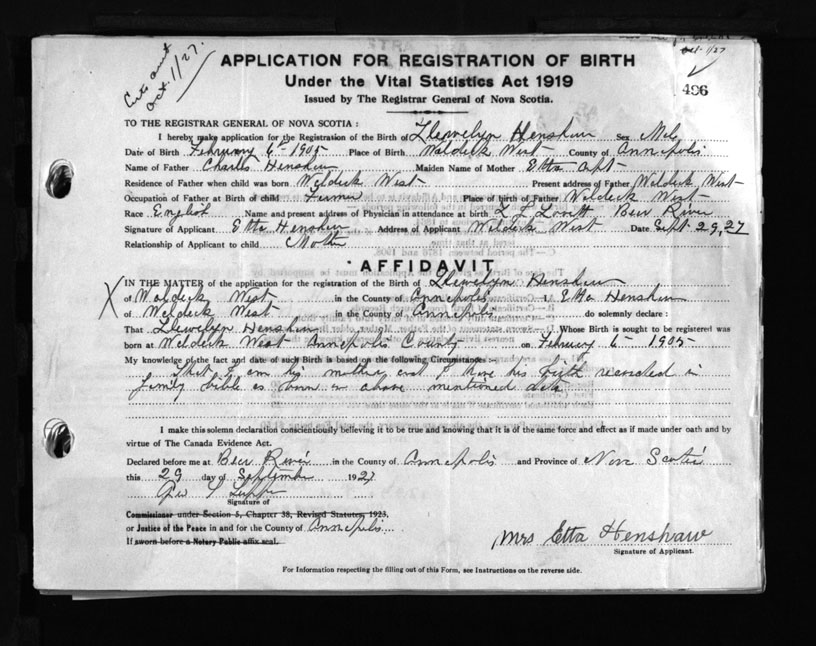 Oct. 1/27.
Oct. 1/27
APPLICATION FOR REGISTRATION OF BIRTH
Under the Vital Statistics Act 1919
Issued by The Registrar General of Nova Scotia.
496
TO THE REGISTRAR GENERAL OF NOVA SCOTIA :
I hereby make application for the Registration of the Birth of Llewelyn Henshaw Sex Male
Date of Birth February 6th 1905 Place of Birth Waldeck West County of Annapolis
Name of Father Charles Henshaw Maiden Name of Mother Etta Apt
Residence of Father when child was born Waldeck West Present address of Father Waldeck West
Occupation of Father at Birth of child Farmer Place of birth of Father Waldeck West
Race English Name and present address of Physician in attendance at birth L. J. Lovett Bear River
Signature of Applicant Etta Henshaw Address of Applicant Waldeck West Date Sept 29, 27
Relationship of Applicant to child Mother
AFFIDAVIT
X IN THE MATTER of the application for the registration of the Birth of Llewelyn Henshaw
of Waldeck West in the County of Annapolis I Etta Henshaw
of Waldeck West in the County of Annapolis do solemnly declare :
That Llewelyn Henshaw Whose Birth is sought to be registered was
born at Waldeck West Annapolis County on February 6 1905
My knowledge of the fact and date of such Birth is based on the following Circumstances :
That I am his mother and I have his birth recorded in
family bible as born on above mentioned date
I make this solemn declaration conscientiously believing it to be true and knowing that it is of the same force and effect as if made under oath and by
virtue of The Canada Evidence Act.
Declared before me at Bear River in the County of Annapolis and Province of Nova Scotia
this 29 day of September 1927
Signature of
Commissioner under Section 5, Chapter 38, Revised Statutes 1923,
or Justice of the Peace in and for the County of Annapolis
If sworn before a Notary Public affix seal.
Mrs Etta Henshaw
Signature of Applicant.
For Information respecting the filling out of this Form, see Instructions on the reverse side.